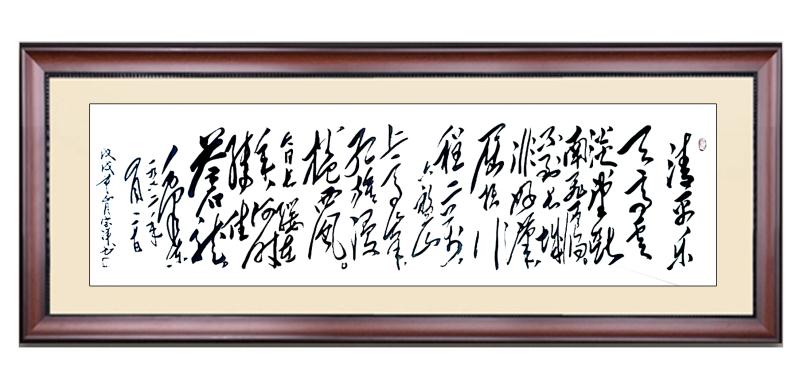 清平乐
天高云
淡望断
南飞雁
不到长城
非好汉
屈指行
程二万
六盘山
上高峰
红旗漫
卷西风。
今日长缨在
手何时
缚住
苍龙
毛泽东
一九六一年
九月